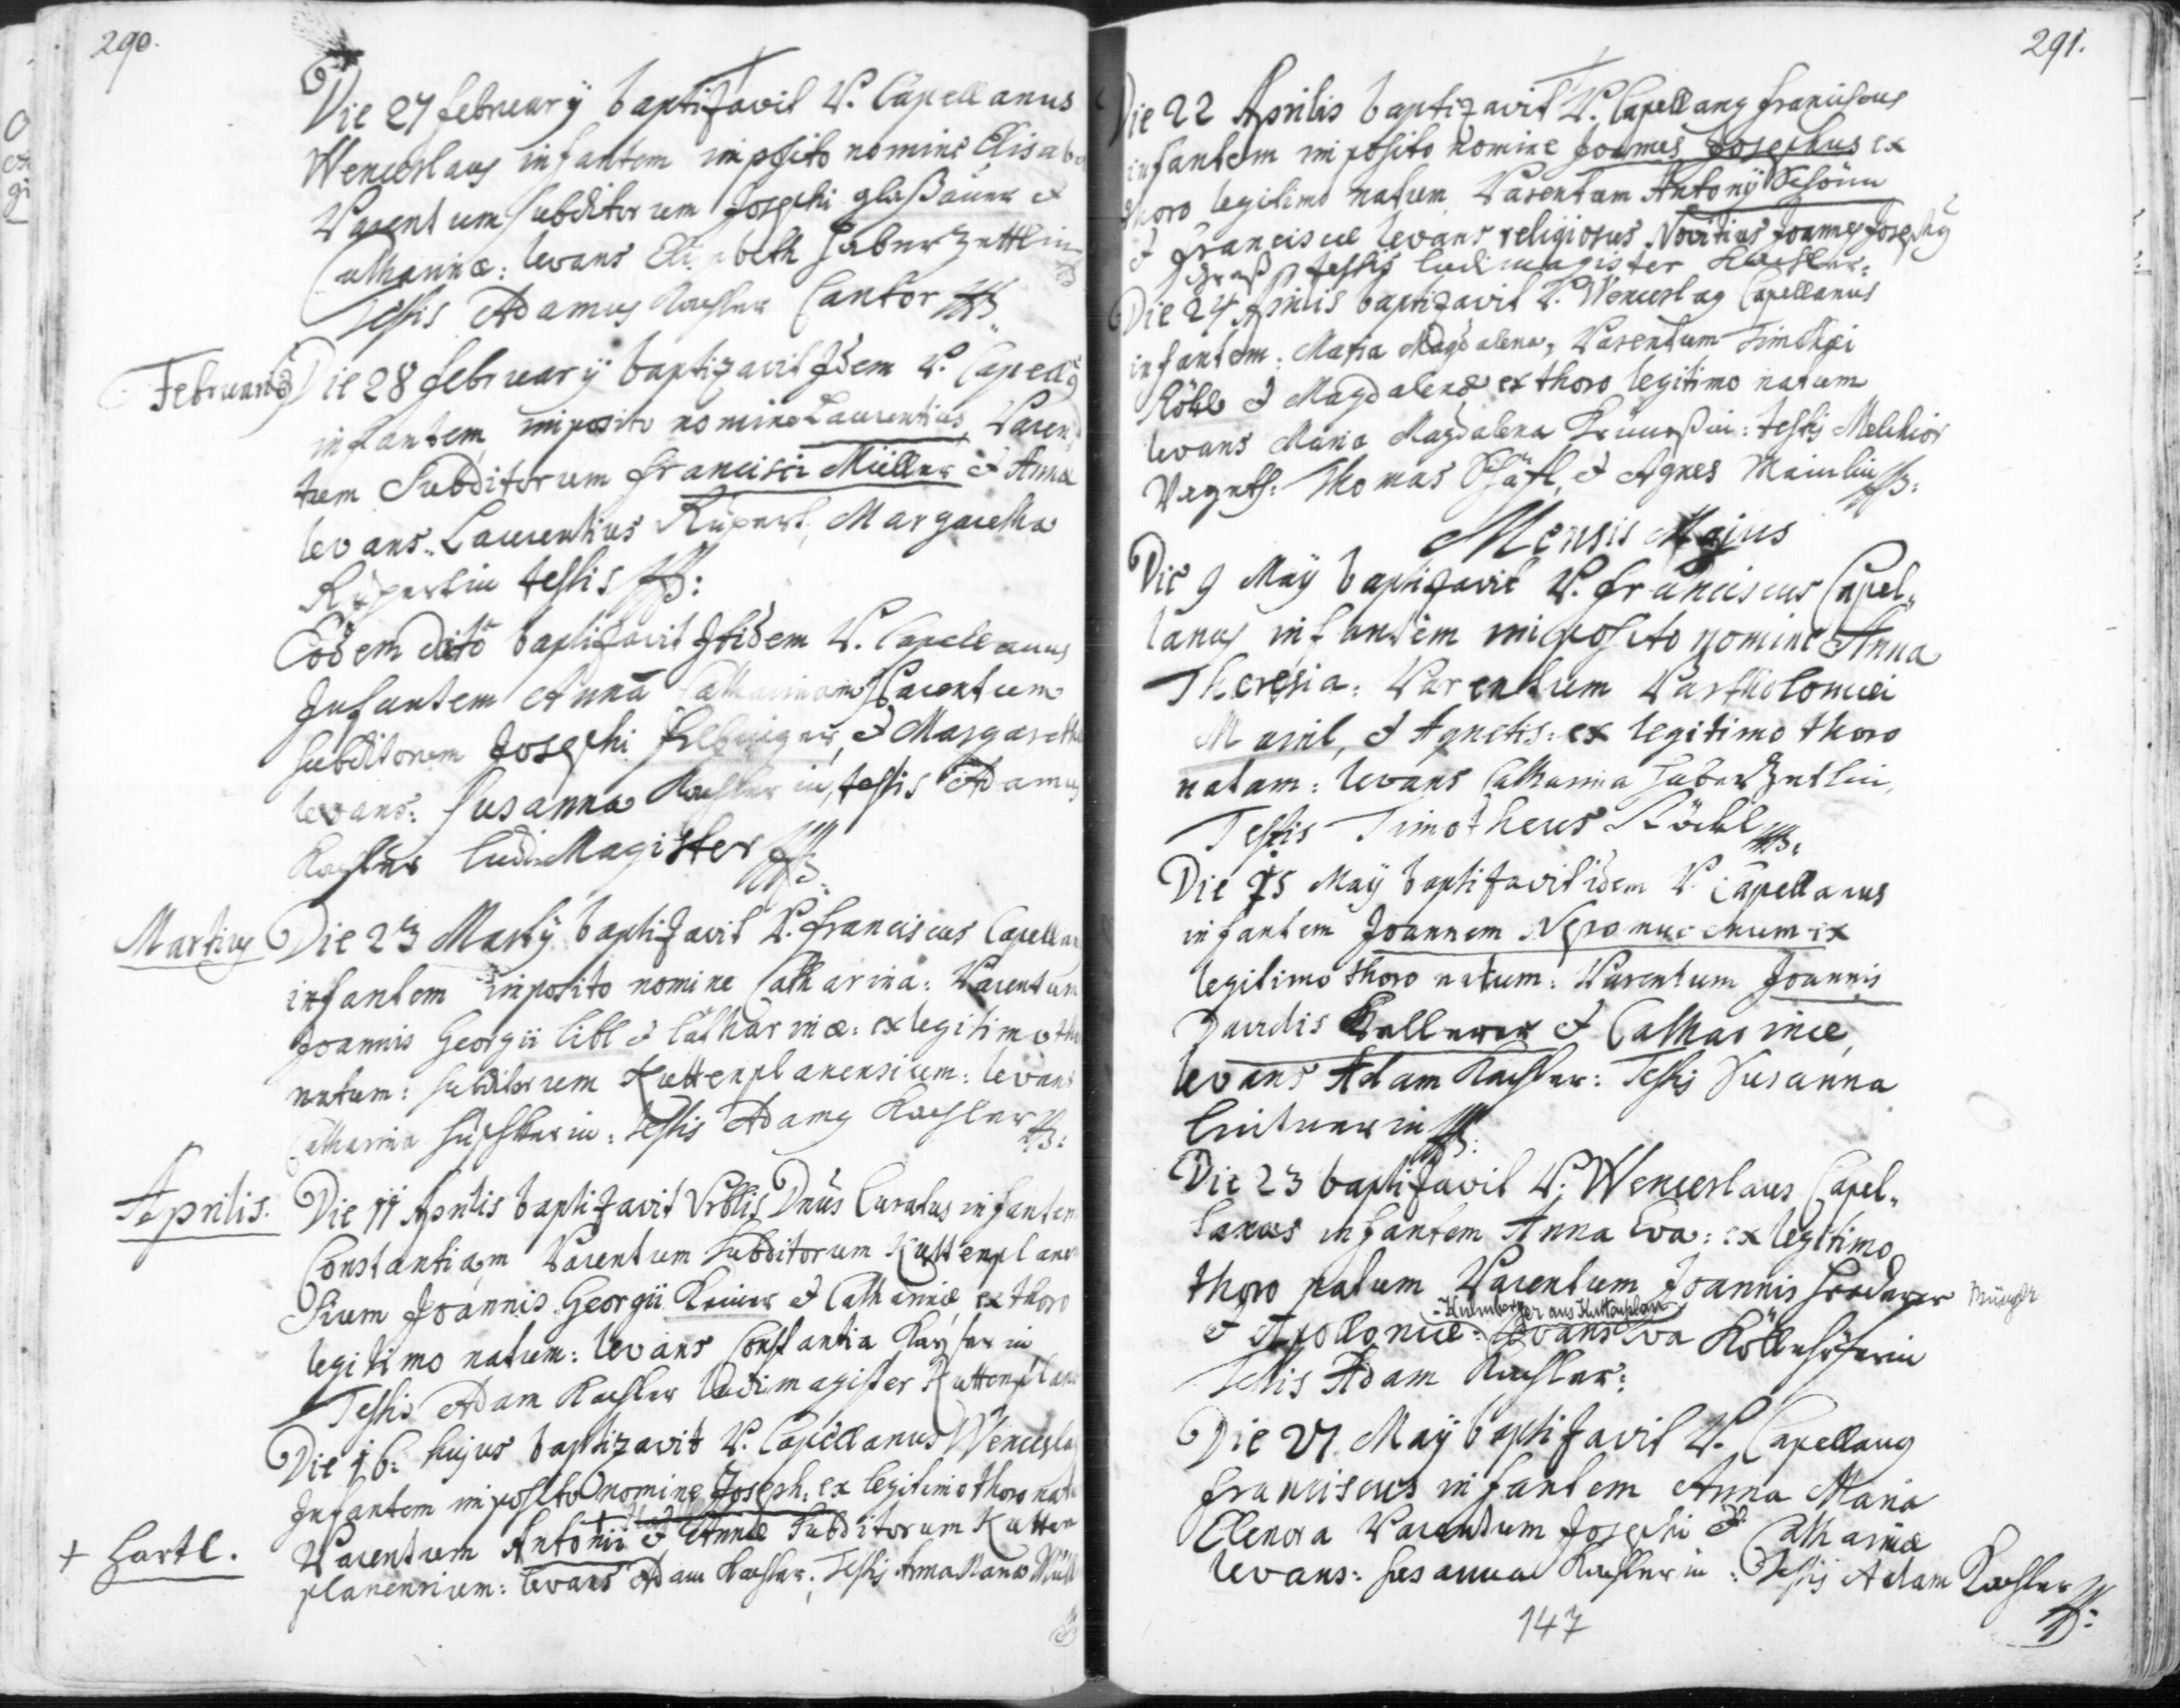 290.
Die 27 february baptizavit P. Capellanus
Wenceslaus infantem imposito nomine Elisabe
Parentum Subditorum Josephi glaßauer &
Catharinæ: levans Elisabeth Haberzettlin
Testis Adamus Kaehler Cantor
Februarius Die 28 february baptizavit Idem P. Capell9
infantem imposito nomine Laurentius, Paren
tum Subditorum francisci Müller & Anna
levans: Laurentius Rupert, Margaretha
Rupertin testis
Eodem dito baptizavit Itidem P. Capellanus
Infantem Annã Catharinam Parentum
subditorum Josephi & Margaretha
levans: Susanna Kaehlerin, testis Adamus
Kaehler ludi Magister
Martius Die 23 Marty baptizavit P. franciscus Capellan
infantem imposito nomine Catharina: Parentum
Joannis Georgii libl & Catharinæ: ex legitimo tho
natum: subditorum Kuttenplanensium: levans
Catharina: testis Adam9 Kaehler
Aprilis. Die 11 Aprilis baptizavit Vrblis Dnūs Curatus infantem
Constantiam Parentum Subditorum Kuttenplanen
sium Joannis Georgii & Catharinæ ex thoro
legitimo natum: levans Constantia Kayserin
Testis Adam Kaehler ludimagister Kuttenplan
Die 16: hujus baptizavit P. Capellanus Wencesla
Infantem imposito nomine Joseph: ex legitimo thoro nat
+ Hartl. Parentum Antonii & Annæ Subditorum Kutten
planensium: levans Adam Kaehler: Testis Anna Maria Müll
291.
Die 22 Aprilis baptizavit P. Capellan9 franciscus
infantem imposito nomine Joannes Josephus ex
thoro legitimo natum Parentum Antony Schönn
& Franciscæ levans religiosus Novitius Joannes Joseph9
testis ludimagister Kaehler:
Die 24 Aprilis baptizavit P. Wenceslag Capellanus
infantem: Maria Magdalena, Parentum Timothei
Röhl & Magdalenæ ex thoro legitimo natum
levans Maria Magdalena: testis Melchior
Thomas & Agnes
Mensis Majus
Die 9 May baptizavit P. franciscus Capel,,
lanus infantem imposito nomine Anna
Theresia: Parentum Bartholomæi
& Agnetis: ex legitimo thoro
natam: levans Catharina Haberzettlin,
Testis Timotheus Röchl
Die 15 May baptizavit idem P. Capellanus
infantem Joannem Nepomucenum ex
legitimo thoro natum: Parentum Joannis
Davidis & Catharinæ,
levans Adam Kaehler: Testis Susanna
Leitnerin
Die 23 baptizavit P. Wenceslaus Capel,,
lanus infantem Anna Eva: ex legitimo
thoro natum Parentum Joannis
& Apolloniæ: levans Eva
Testis Adam Kaehler:
Die 27 May baptizavit P. Capellanus
franciscus infantem Anna Maria
Elenora Parentum Josephi & Catharinæ
levans: Susanna Kaehlerin: Testis Adam Kaehler
147